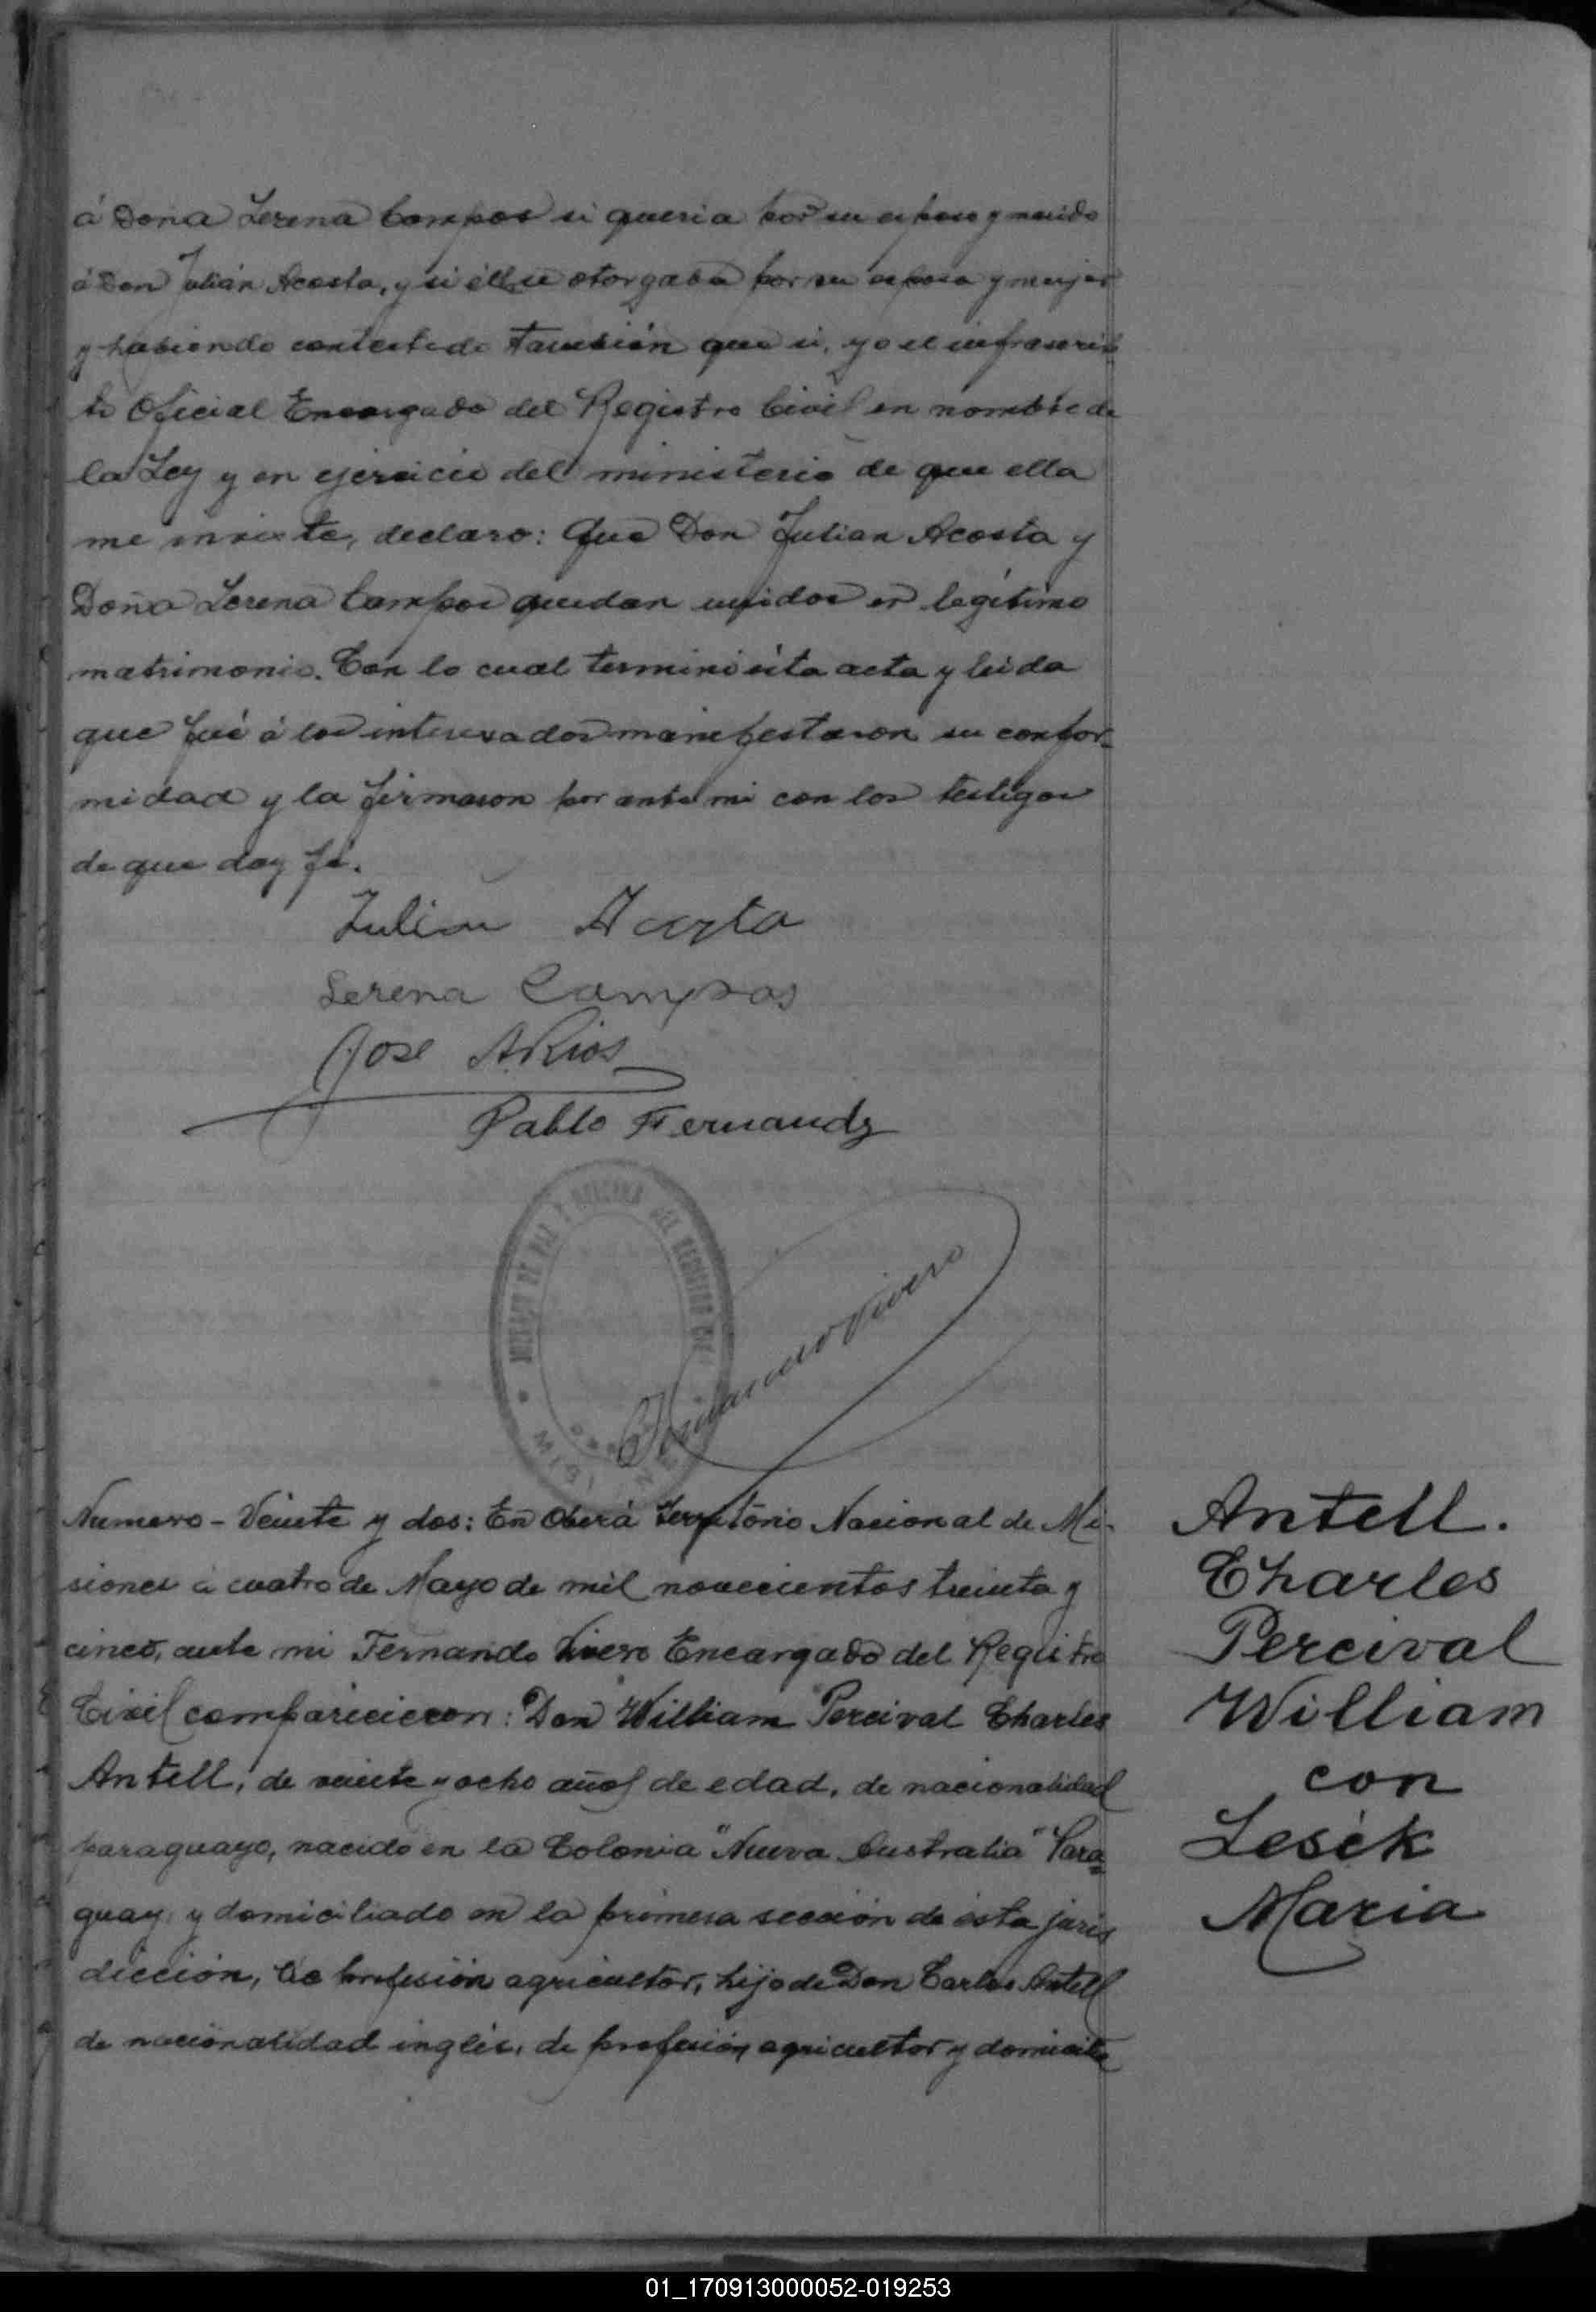 á Doña Serena Campos si queria por su esposo y marido
á Don Julián Acosta, y si él se otorgaba por su esposo y mujer
y habiendo contestado también que si, yo el infrascrip-
to Oficial Encargado del Registro Civil en nombre de
la Ley y en ejercicio del ministerio de que ella
me inviste, declaro: Que Don Julian Acosta y
Doña Serena Campos quedan unidos en legítimo
matrimonio. Con lo cual terminó ésta acta y leida
que fué á los interesados manifestaron su confor-
midad y la firmaron por ante mi con los testigos
de que doy fé.
Julian Acosta
Serena Campos
Jose A Rios
Pablo Fernandz
JUZGADO DE PAZ Y OFICINA DEL REGISTRO CIVIL
MISIONES
Fernando Vivero
Numero - Veinte y dos: En Oberá Territorio Nacional de Mi-
siones á cuatro de Mayo de mil novecientos treinta y
cinco, ante mi Fernando Vivero Encargado del Registro
Civil comparecieron: Don William Percival Charles
Antell, de veinte y ocho años de edad, de nacionalidad
paraguayo, nacido en la Colonia "Nueva Australia" Para=
guay, y domiciliado en la primera sección de ésta juris
dicción, de profesión agricultor, hijo de Don Carlos Antell
de nacionalidad inglés, de profesión agricultor y domicilia
Antell.
Charles
Percival
William
con
Lesék
Maria
01_170913000052-019253